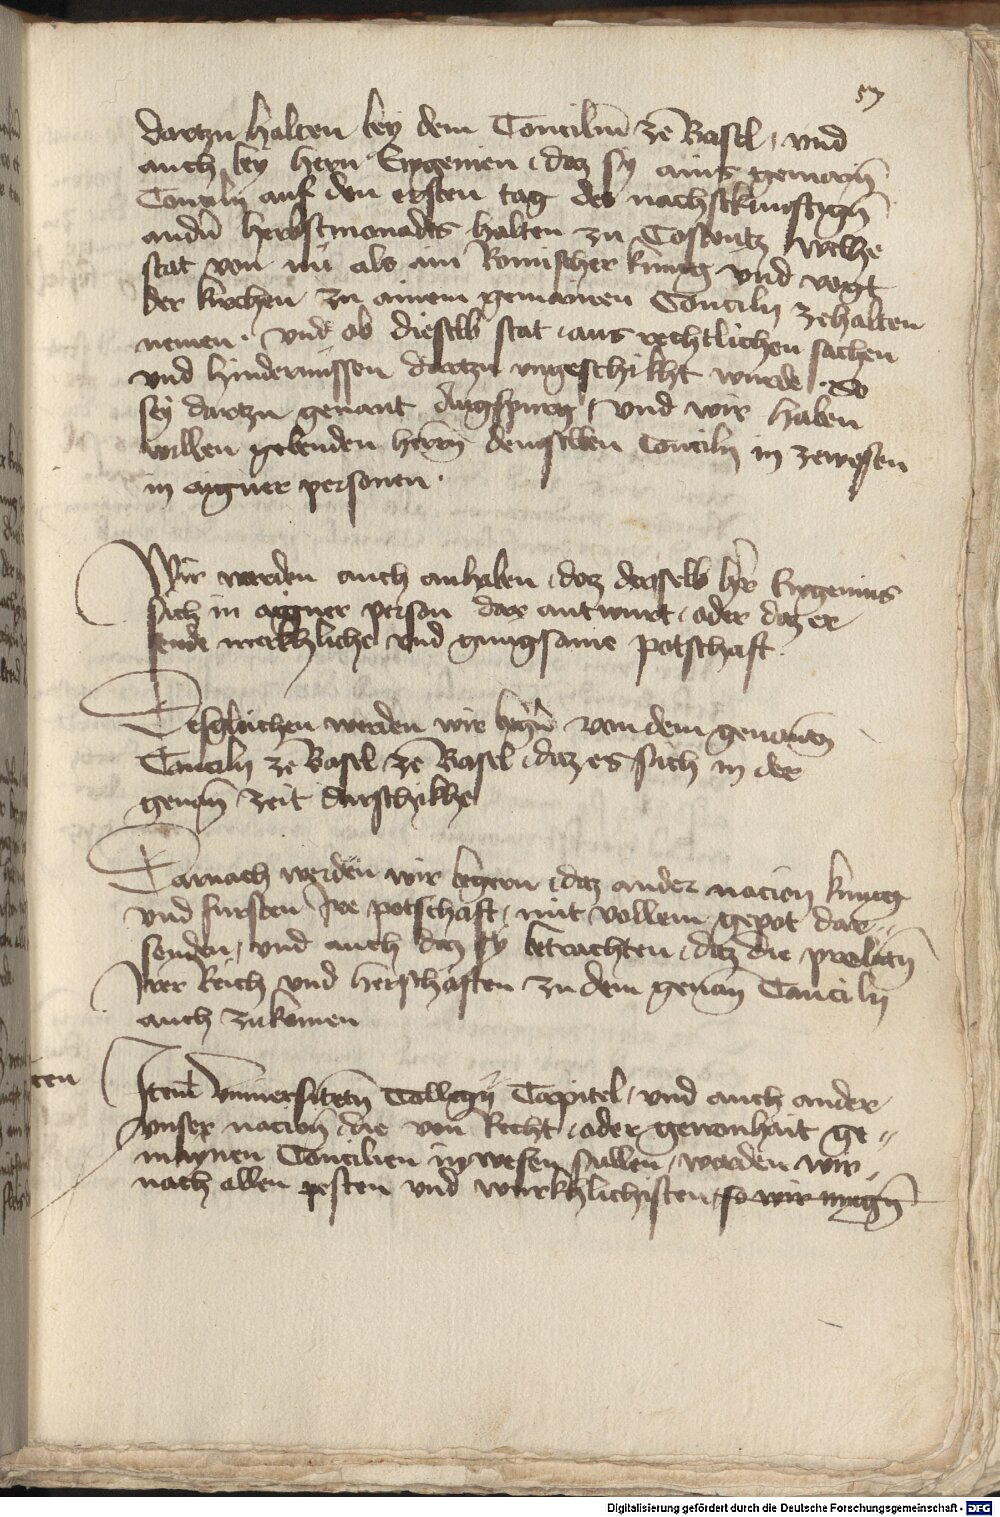 57
dartzu halten bey dem Conciliũ zẽ Basel, und
auch bey hern Eugenien, daz sy ains gemayñ
Concily auf den ersten tag des nachstkunftign̄
andn̄ herbstmonadts halten zu Costentz, welhe
stat von nu als ain Romischer kunig und vogt
der kirchen zu ainem gemainen Concily ze halten
nemen. und ob dieselb stat, aus rechtlichen sachen
und hindernüssen dartzu ungeschikht wurde, So
sey dartzu genant Augspurg, und wir haben
willen gebenden herrn̄ demselben Concily in zewesen
in aigner personen.
Wir werden auch anhaben, daz derselb h̄r Eugenius
sich in aigner person dar antwurt, oder daz er
sende merkhliche und gnugsame potschaft.
Desgleichen werden wir begn̄ von dem genanten
Concily zẽ Basel zẽ Basel, daz es sich in der
genan̄ zeit darschikhe
Darnach werden wir begern, daz ander nacien kunig
und fursten Ire potschaft, mit vollem gepot dar-
senden, und auch daz sy betrachten, daz die prelatn̄
Irer Reich und herschaften zu dem genan̄ Concily
auch zukomen
ten
Item Universitetn̄ Collegy Capitel, und auch ander
unser nacion̄, die von Recht, oder gewonhait ge-
maynen Concilien inwesen sullen, werden wir
nach allen pesten und wurkhlichisten, so wir mugn̄
Digitalisierung gefördert durch die Deutsche Forschungsgemeinschaft - DFG